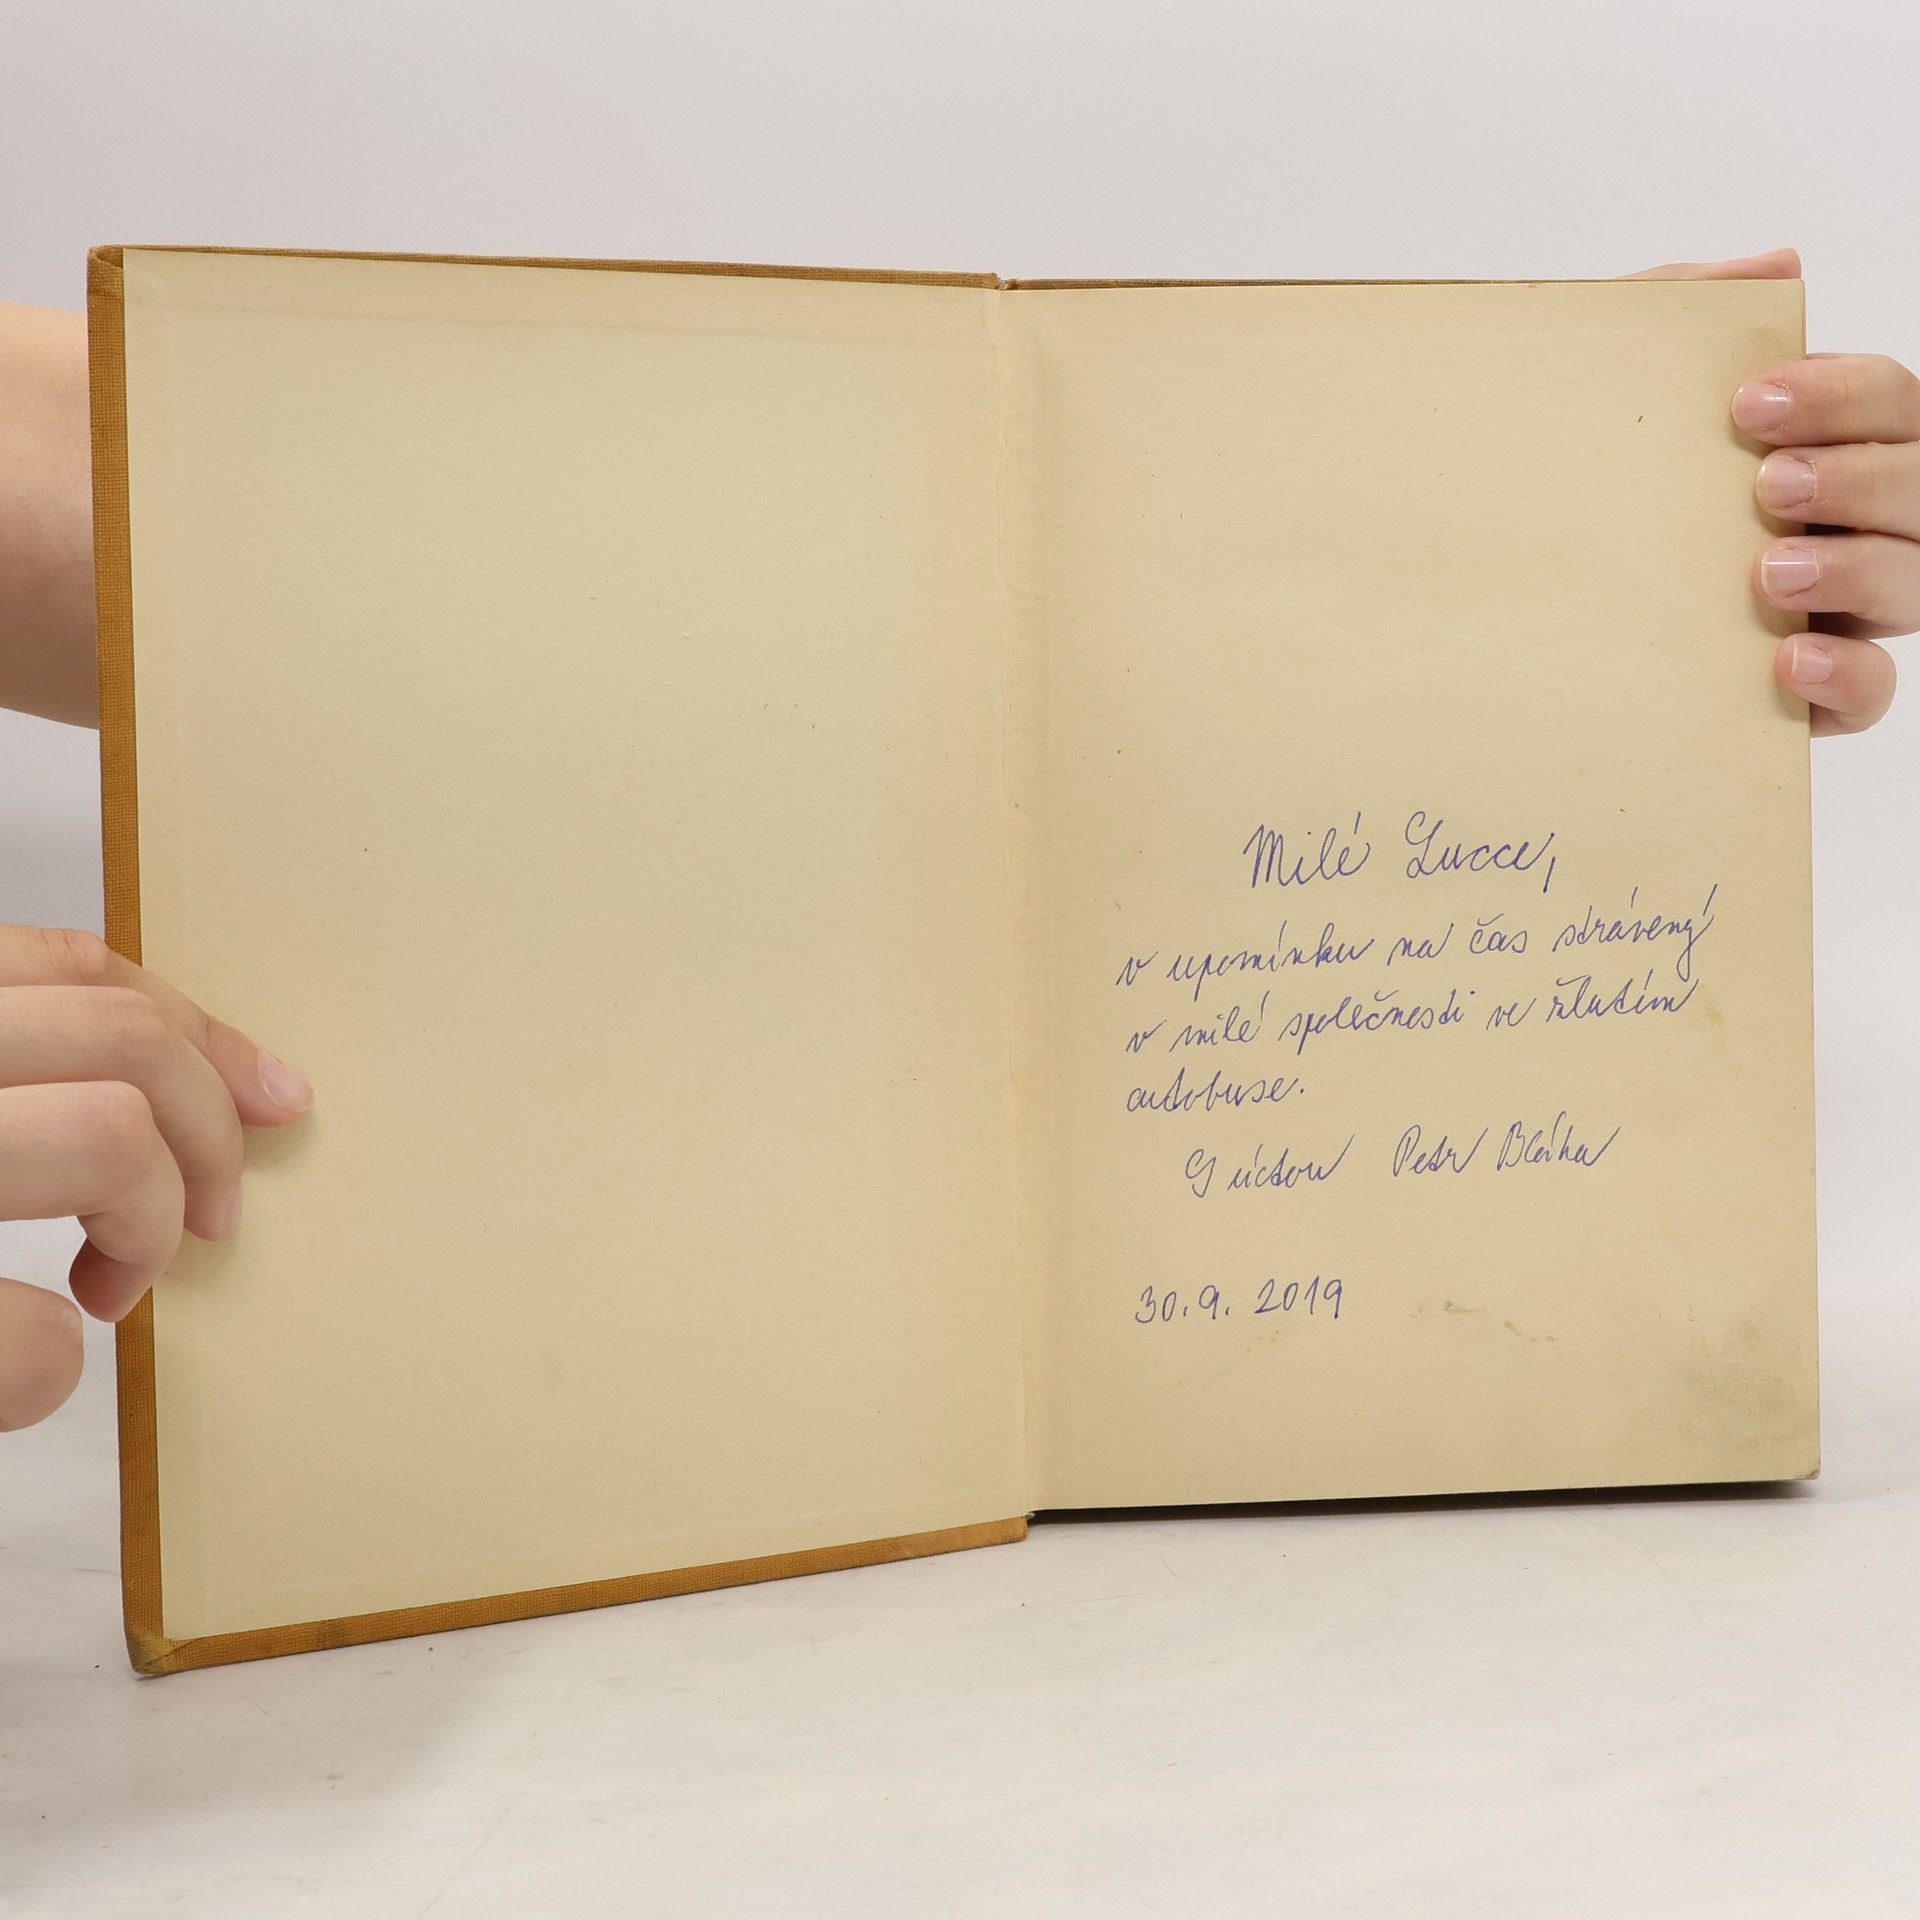 Milé Lucce,
v upomínku na čas strávený
v milé společnosti ve žlutém
autobuse.
S úctou Petr Bláha
30.9. 2019